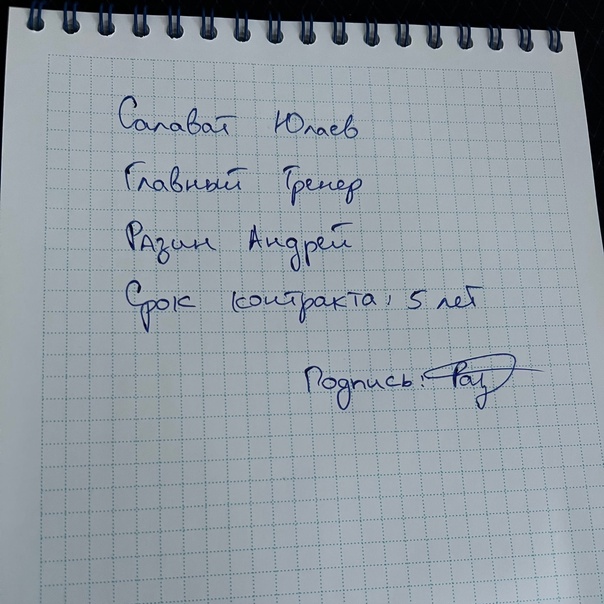 Салават Юлаев
Главный Тренер
Разин Андрей
Срок контракта: 5 лет
Подпись: Раз